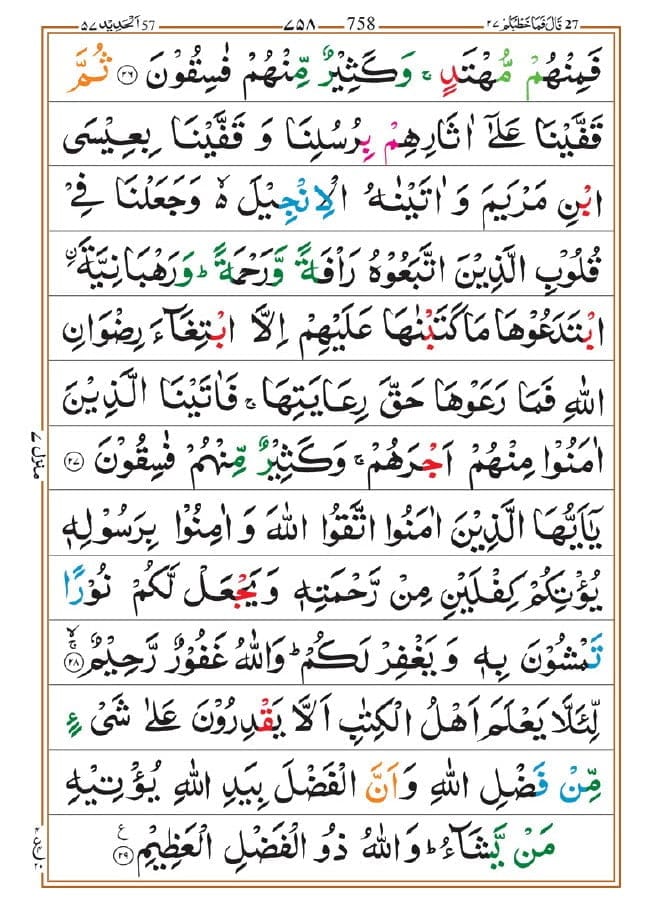 27 قَالَ فَمَا خَطْبُكُمْ ٢٧
758 ٧٥٨
57 اَلْحَدِيْد ٥٧
فَمِنْهُمْ مُّهْتَدٍ ۚ وَكَثِيْرٌ مِّنْهُمْ فٰسِقُوْنَ ٢٦ ثُمَّ
قَفَّيْنَا عَلٰٓى اٰثَارِهِمْ بِرُسُلِنَا وَ قَفَّيْنَا بِعِيْسَى
ابْنِ مَرْيَمَ وَ اٰتَيْنٰهُ الْاِنْجِيْلَ ۙ۬ وَ جَعَلْنَا فِيْ
قُلُوْبِ الَّذِيْنَ اتَّبَعُوْهُ رَاْفَةً وَّرَحْمَةً ؕ وَ رَهْبَانِيَّةَ ن
ابْتَدَعُوْهَا مَا كَتَبْنٰهَا عَلَيْهِمْ اِلَّا ابْتِغَآءَ رِضْوَانِ
اللّٰهِ فَمَا رَعَوْهَا حَقَّ رِعَايَتِهَا ۚ فَاٰتَيْنَا الَّذِيْنَ
اٰمَنُوْا مِنْهُمْ اَجْرَهُمْ ۚ وَكَثِيْرٌ مِّنْهُمْ فٰسِقُوْنَ ٢٧
يٰۤاَيُّهَا الَّذِيْنَ اٰمَنُوا اتَّقُوا اللّٰهَ وَ اٰمِنُوْا بِرَسُوْلِهٖ
يُؤْتِكُمْ كِفْلَيْنِ مِنْ رَّحْمَتِهٖ وَ يَجْعَلْ لَّكُمْ نُوْرًا
تَمْشُوْنَ بِهٖ وَ يَغْفِرْ لَكُمْ ؕ وَاللّٰهُ غَفُوْرٌ رَّحِيْمٌ ٢٨ ۙۚ
لِّئَلَّا يَعْلَمَ اَهْلُ الْكِتٰبِ اَلَّا يَقْدِرُوْنَ عَلٰى شَيْءٍ
مِّنْ فَضْلِ اللّٰهِ وَ اَنَّ الْفَضْلَ بِيَدِ اللّٰهِ يُؤْتِيْهِ
مَنْ يَّشَآءُ ؕ وَاللّٰهُ ذُو الْفَضْلِ الْعَظِيْمِ ٢٩ ع
منزل ٧